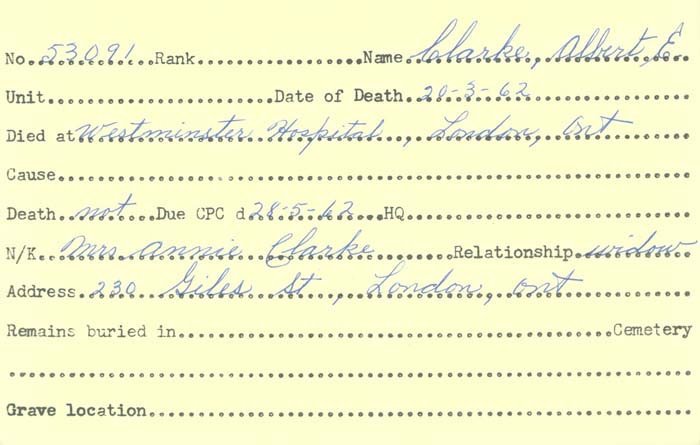 No. 53091 Rank Name Clarke, Albert, E.
Unit Date of Death 20-3-62
Died at Westminster Hospital, London, Ont
Cause
Death not Due CPC d 28-5-62 HQ
N/K. Mrs Annie Clarke Relationship widow
Address 230 Giles St, London, Ont
Remains buried in Cemetery
Grave location